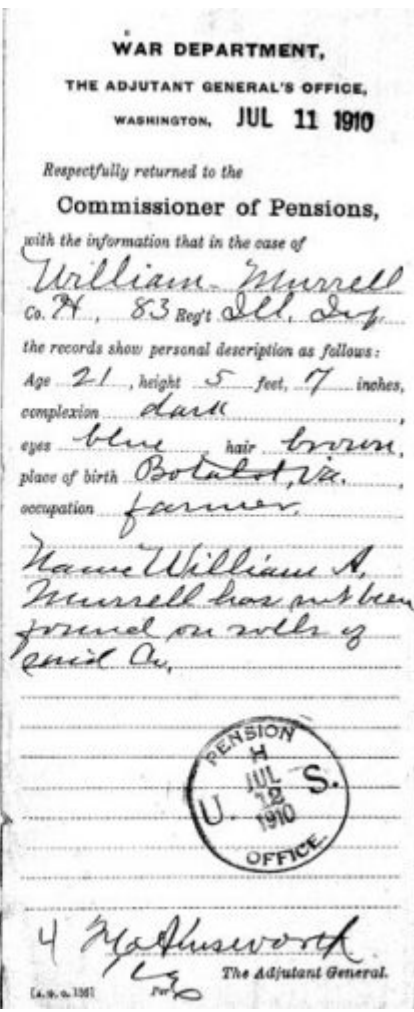 WAR DEPARTMENT,
THE ADJUTANT GENERAL'S OFFICE,
WASHINGTON, JUL 11 1910
Respectfully returned to the
Commissioner of Pensions,
with the information that in the case of
William Murrell
Co. H, 83 Reg't Ill. Inf
the records show personal description as follows:
Age 21, height 5 feet, 7 inches,
complexion dark,
eyes blue, hair brown,
place of birth Botatot, Va.,
occupation farmer.
Name William A.
Murrell has not been
found on rolls of
said Co.
PENSION
H
JUL
12
U. S.
1910
OFFICE
4 Ainsworth
The Adjutant General.
Per